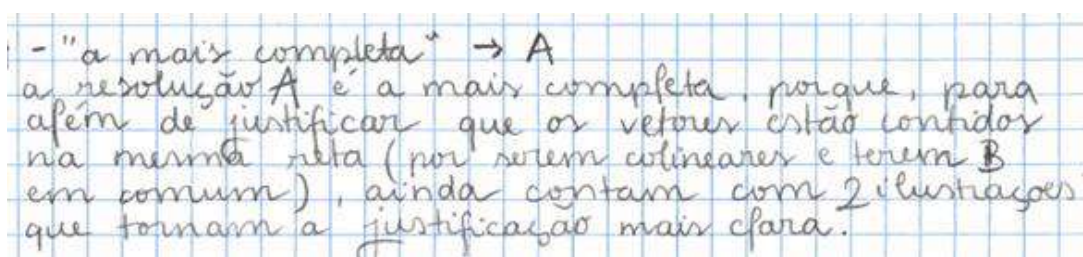 - "a mais completa" → A
a resolução A é a mais completa, porque, para
além de justificar que os vetores estão contidos
na mesma reta (por serem colineares e terem B
em comum), ainda contam com 2 ilustrações
que tornam a justificação mais clara.